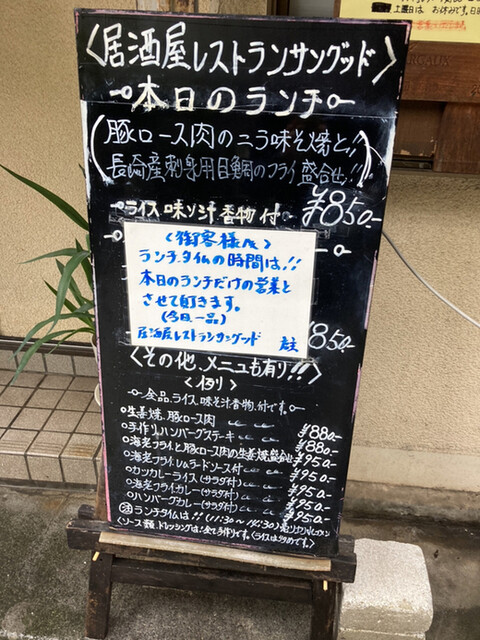 土曜日は お休みです。
〈居酒屋レストランサングッド〉
本日のランチ
豚ロース肉のニラ味そ焼と!!
長崎産刺身用目鯛のフライ盛合せ!!
ライス味ソ汁香物付 ¥850-
〈御客様へ〉
ランチタイムの時間は!!
本日のランチだけの営業と
させて頂きます。
(今日一品)
居酒屋レストランサングッド 店主
850-
〈その他、メニュも有り!!!〉
〈例り〉
全品、ライス、味そ汁、香物、付です。
○生姜焼、豚ロース肉 ¥880-
○手作りハンバーグステーキ ¥880-
○海老フライと豚ロース肉の生姜焼盛合せ ¥950-
○海老フライレムラードソース付 ¥950-
○カツカレーライス(サラダ付) ¥950-
○海老フライカレー(サラダ付) ¥950-
○ハンバーグカレー(サラダ付) ¥950-
注 ランチタイムは!!(11:30~14:30)
〈ソース類、ドレッシングは全て手作りです。〈ライスは少なめです。〉